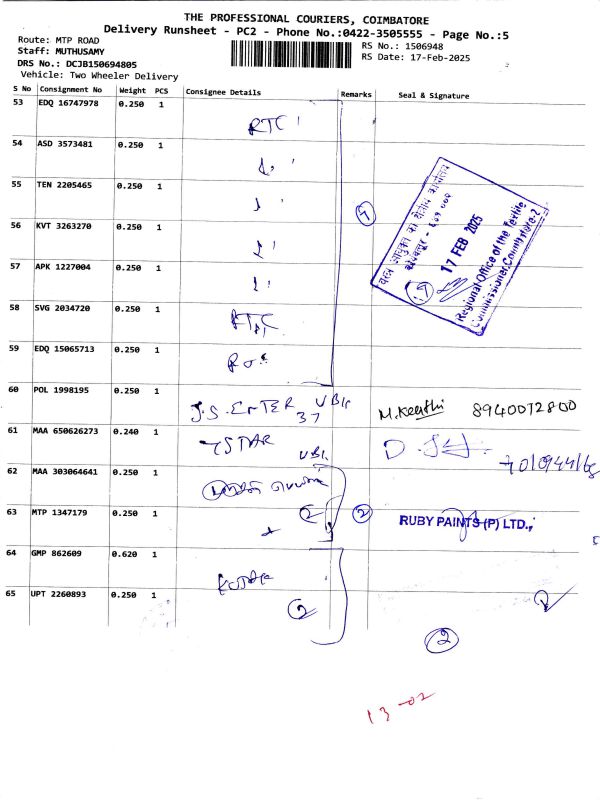 THE PROFESSIONAL COURIERS, COIMBATORE
Delivery Runsheet - PC2 - Phone No.:0422-3505555 - Page No.:5
Route: MTP ROAD
Staff: MUTHUSAMY
DRS No.: DCJB150694805
Vehicle: Two Wheeler Delivery
RS No.: 1506948
RS Date: 17-Feb-2025
S No Consignment No Weight PCS Consignee Details Remarks Seal & Signature
53 EDQ 16747978 0.250 1
RTC
54 ASD 3573481 0.250 1
55 TEN 2205465 0.250 1
56 KVT 3263270 0.250 1
57 APK 1227004 0.250 1
58 SVG 2034720 0.250 1
RTC
59 EDQ 15065713 0.250 1
17 FEB 2025
Regional Office of the Textile
Commissioner, Coimbatore-2
60 POL 1998195 0.250 1
J.S. ENTER 37 M.Keerthi 8940072800
61 MAA 650626273 0.240 1
7STAR
62 MAA 303064641 0.250 1
63 MTP 1347179 0.250 1
2 RUBY PAINTS (P) LTD.,
64 GMP 862609 0.620 1
65 UPT 2260893 0.250 1
2
2
13-02